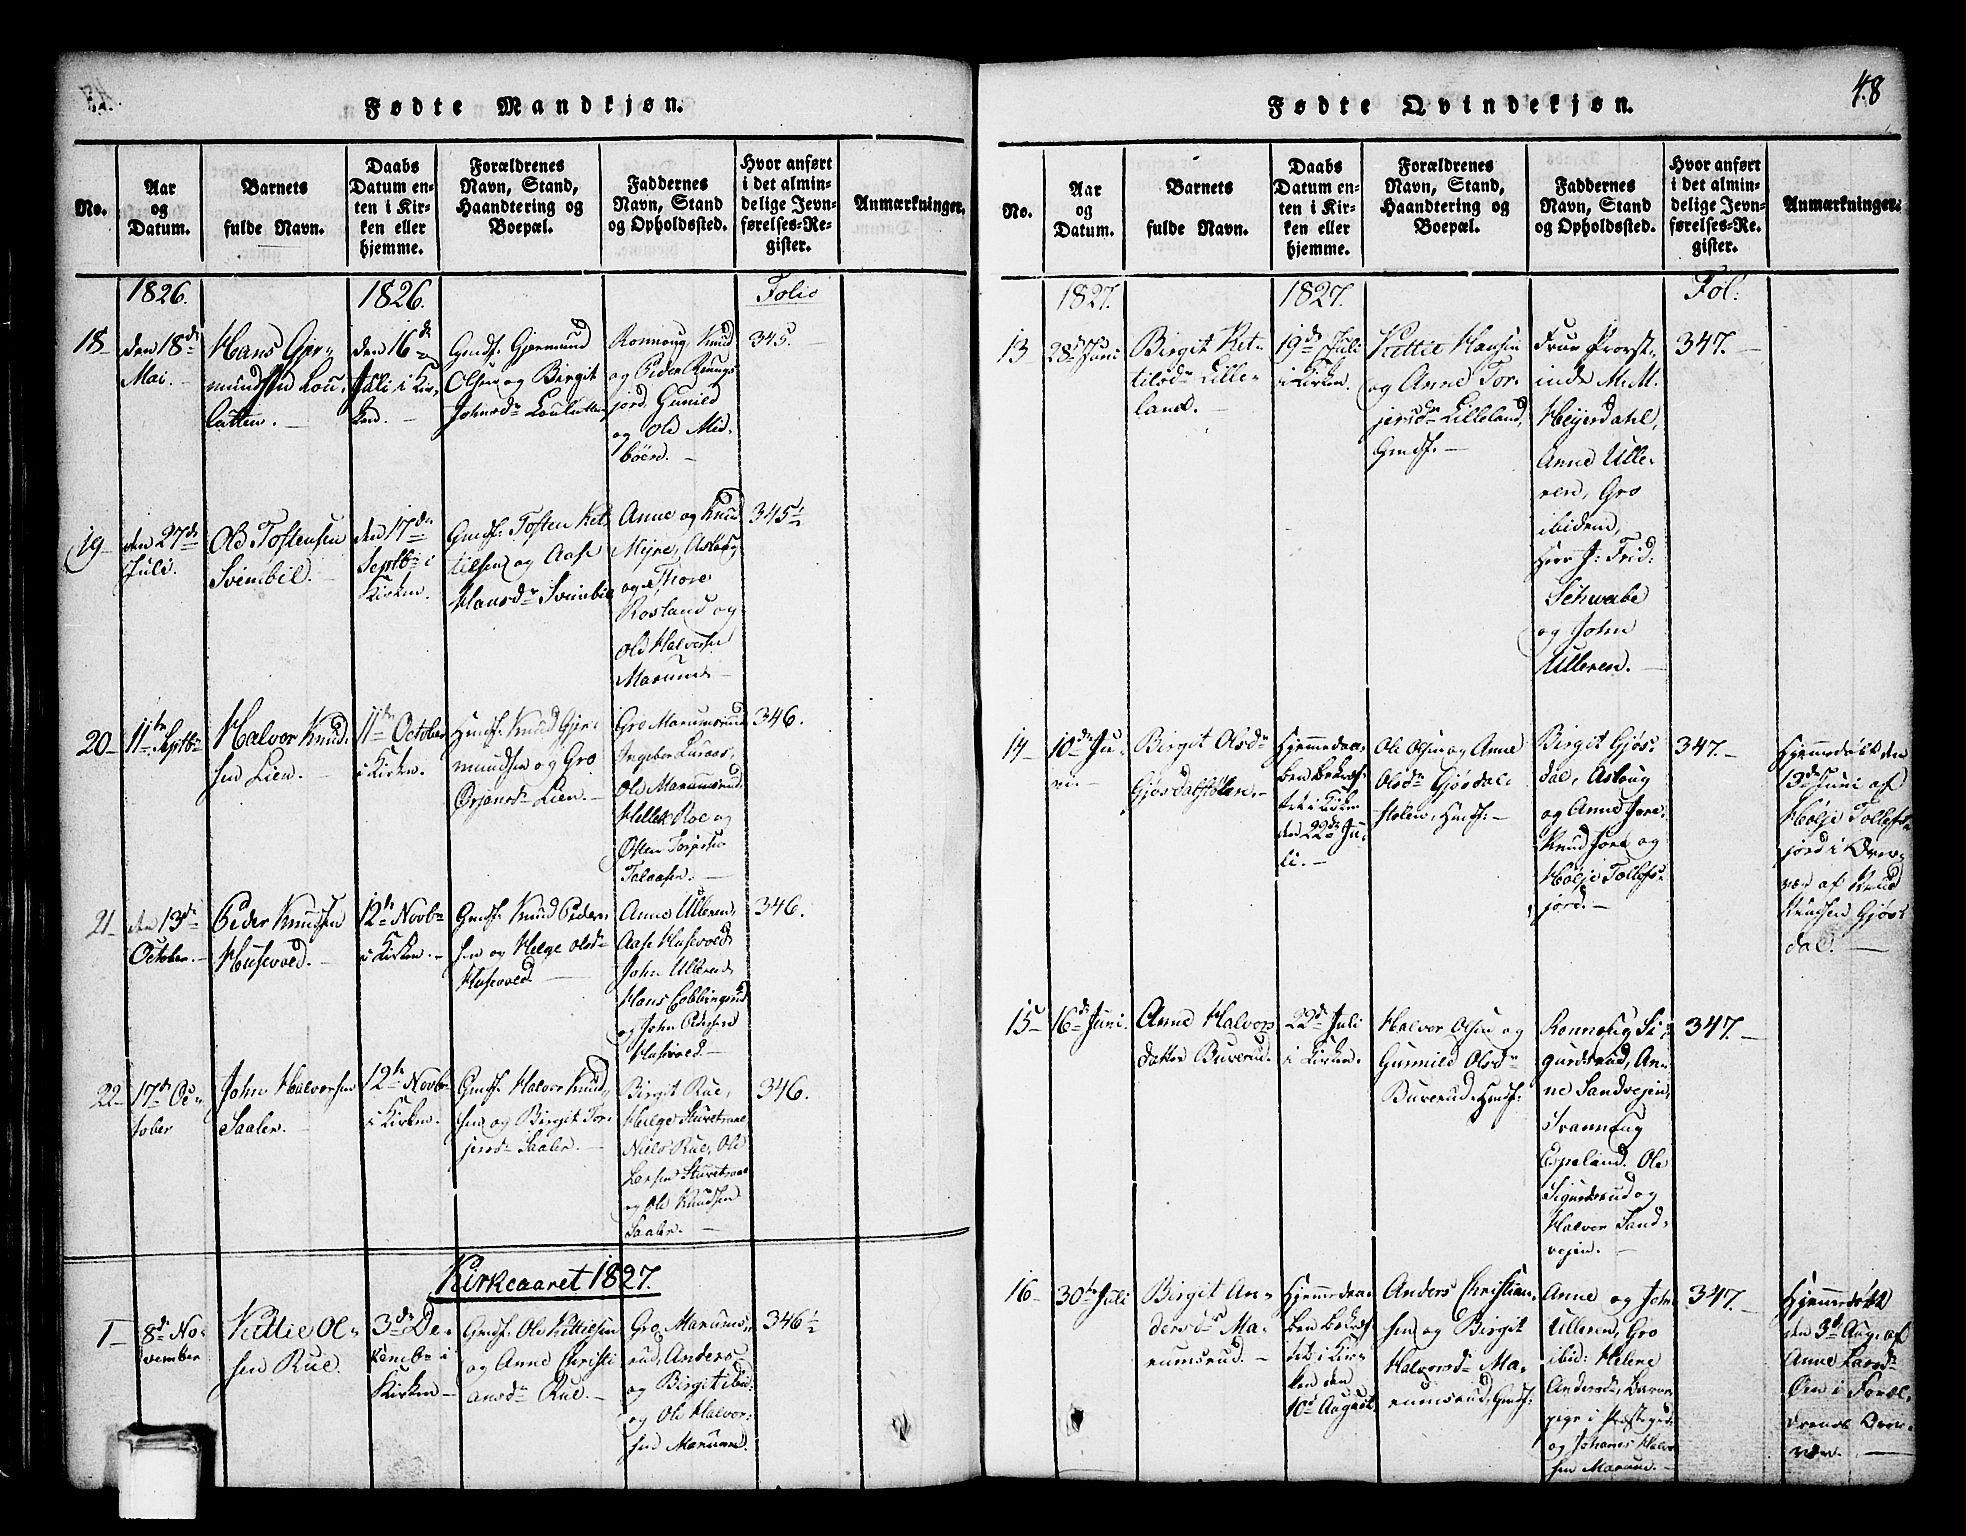 48
Fødte Mandkjøn.
No.
Aar
og
Datum.
Barnets
fulde Navn.
Daabs
Datum en-
ten i Kir-
ken eller
hjemme.
Forældrenes
Navn, Stand,
Haandtering og
Boepæl.
Faddernes
Navn, Stand
og Opholdssted.
Hvor anført
i det almin-
delige Jevn-
førelses-Re-
gister.
Anmærkninger.
1826.
1826.
Folio
18-
den 18de
Mai.
Hans Gjer-
mundsen Lou-
lutten.
den 16de
Juli i Kir-
ken.
Gmdf. Gjermund
Olsen og Birgit
Johnsdr Loulutten
Ronnoug, Knud
og Peder Rungs
jord, Gunild
og Ole Med-
böen.
345.
19-
den 27de
Juli.
Ole Tostensen
Svimbil.
den 17de
Septbr i
Kirken.
Gmdf. Tosten Ket-
tilsen og Aase
Hansdr Svimbil
Anne og Knud
Myre, Aslaug
og Thore
Rosland og
Ole Halvorsen
Marum
345½
20-
11te Septbr
Halvor Knud-
sen Lien.
11te October
i Kirken.
Hmdf. Knud Gjer-
mundsen og Gro
Ørjansdr Lien.
Gro Marumsrud
Ingebor Luraas,
Ole Marumsrud,
Hellek Roe og
Østen
346.
21-
den 13de
October.
Peder Knudsen
Husevold.
12te Novbr
i Kirken.
Gmdf. Knud Peder-
sen og Helge Olsdr
Husevold
Anne Ulleren,
Aase Husevold
John Ulleren
Hans
og John Pedersen
Husevold.
346.
22-
17de Oc-
tober
John Halvorsen
Saaler.
12te Novbr
i Kirken.
Gmdf. Halvor Knud-
sen og Birgit Tor-
jersdr Saaler.
Birgit Rue,
Helge
Niels Rue, Ole
og Ole Knudsen
Saaler.
346.
Kirkeaaret 1827.
1-
8de No-
vember
Kittil Ol-
sen Rue.
3de De-
cembr i
Kirken
Gmdf. Ole Kittilsen
og Anne Christi
ansdr Rue.
Gro Marums-
rud, Anders
og Birgit ibid:
og Ole Halvor-
sen Marum.
346½
Fødte Qvindekjøn.
No.
Aar
og
Datum.
Barnets
fulde Navn.
Daabs
Datum en-
ten i Kir-
ken eller
hjemme.
Forældrenes
Navn, Stand,
Haandtering og
Boepæl.
Faddernes
Navn, Stand
og Opholdssted.
Hvor anført
i det almin-
delige Jevn-
førelses-Re-
gister.
Anmærkninger.
1827.
1827.
Fol:
13
28de Juni
Birgit Ket-
tilsdr Lille-
land.
19de Juli
i Kirken.
Kittil Hansen
og Anne Tor-
jersdr Lilleland,
Gmdf.
Frue Provst-
inde M. M.
Heyerdahl,
Anne Ulle-
ren, Gro
ibidem,
Herr J: Frid:
Schwabe
og John
Ulleren.
347.
14
10de Ju-
ni.
Birgit Olsdr
Gjösdalstölen.
Hjemmedaa-
ben bekræf-
tet i Kirken
den 22de Ju-
li.
Ole Olsen og Anne
Olsdr Gjösdal-
stölen, Hmdf:
Birgit Gjös-
dal, Aslaug
og Anne Jore,
Knud Jore og
Holje Tollefs-
jord.
347.
Hjemmedöbt den
13de Juni af
Holje Tollefs-
jord i Over-
vær af Knud
Knudsen Gjös-
dal.
15-
16de Juni.
Anne Halvors
datter Buverud.
22de Juli
i Kirken.
Halvor Olsen og
Gunnild Olsdr
Buverud, Hmdf:
Ronnoug Si-
gurdsrud, An-
ne Sandvejen,
Svannoug
Espeland. Ole
Sigurdsrud og
Halvor Sand-
vejen.
347.
16-
30te Juli
Birgit An-
dersdr Ma-
rumsrud.
Hjemmedaa-
ben bekræf-
tet i Kir-
ken den
10de August.
Anders Christian-
sen og Birgit
Halvorsdr Ma-
rumsrud, Gmdf:
Anne og John
Ulleren, Gro
ibid: Helene
Andersdr, Barne
pige i Præstegrd:
og Johanes Halvor
sen Marum.
347.
Hjemmedöbt
den 3de Aug. af
Anne Larsdr
Öen i Foræl-
drenes Over-
vær.